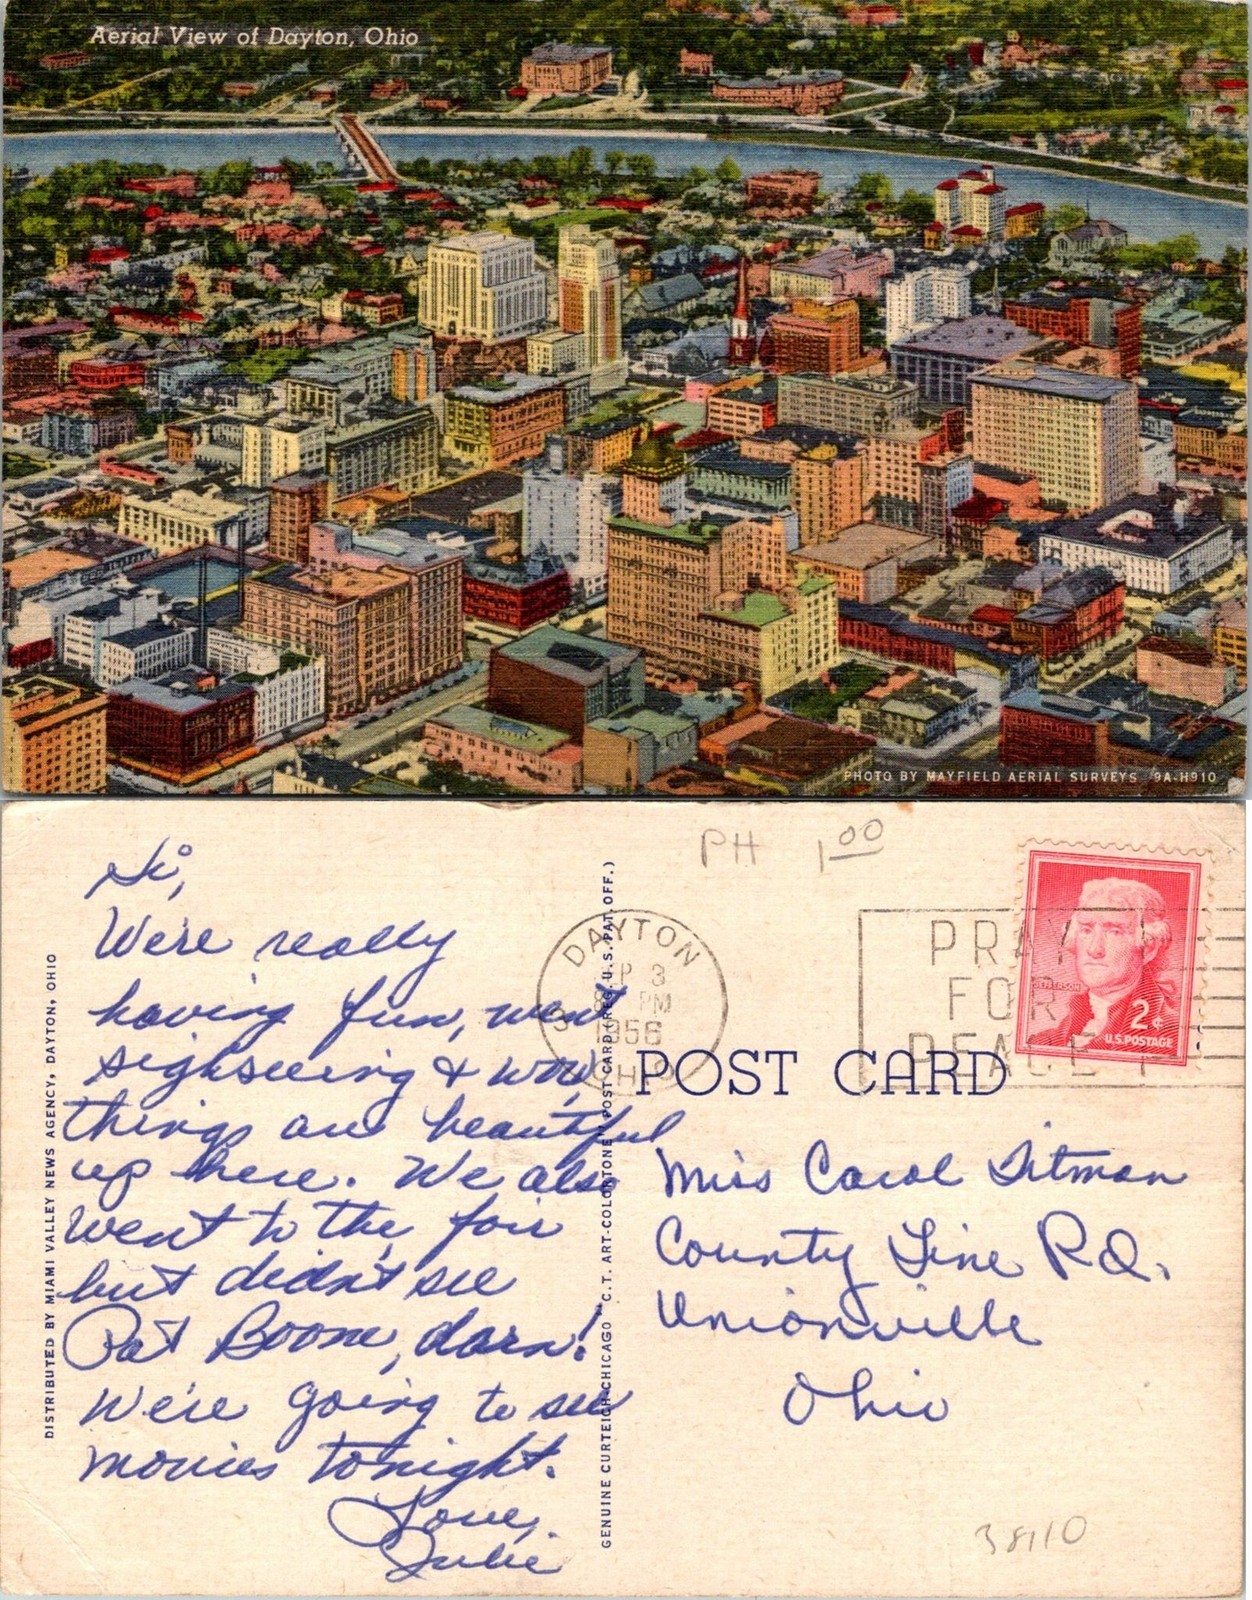 Aerial View of Dayton, Ohio
PHOTO BY MAYFIELD AERIAL SURVEYS 9A-H910
PH 100
Hi,
We're really
having fun, went
sighseeing & wow,
things are beautiful
up here. We also
went to the fair
but didn't see
Pat Boone, darn!
We're going to see
movies tonight.
Love,
Julie
DISTRIBUTED BY MIAMI VALLEY NEWS AGENCY, DAYTON, OHIO
GENUINE CURTEICH-CHICAGO "C.T. ART-COLORTONE" POST CARD (REG. U.S. PAT. OFF.)
DAYTON
3
PM
1956
OHIO
PRAY
FOR
PEACE
JEFFERSON
2¢
U.S. POSTAGE
POST CARD
Miss Carol Titman
County Line Rd.
Unionville
Ohio
38110